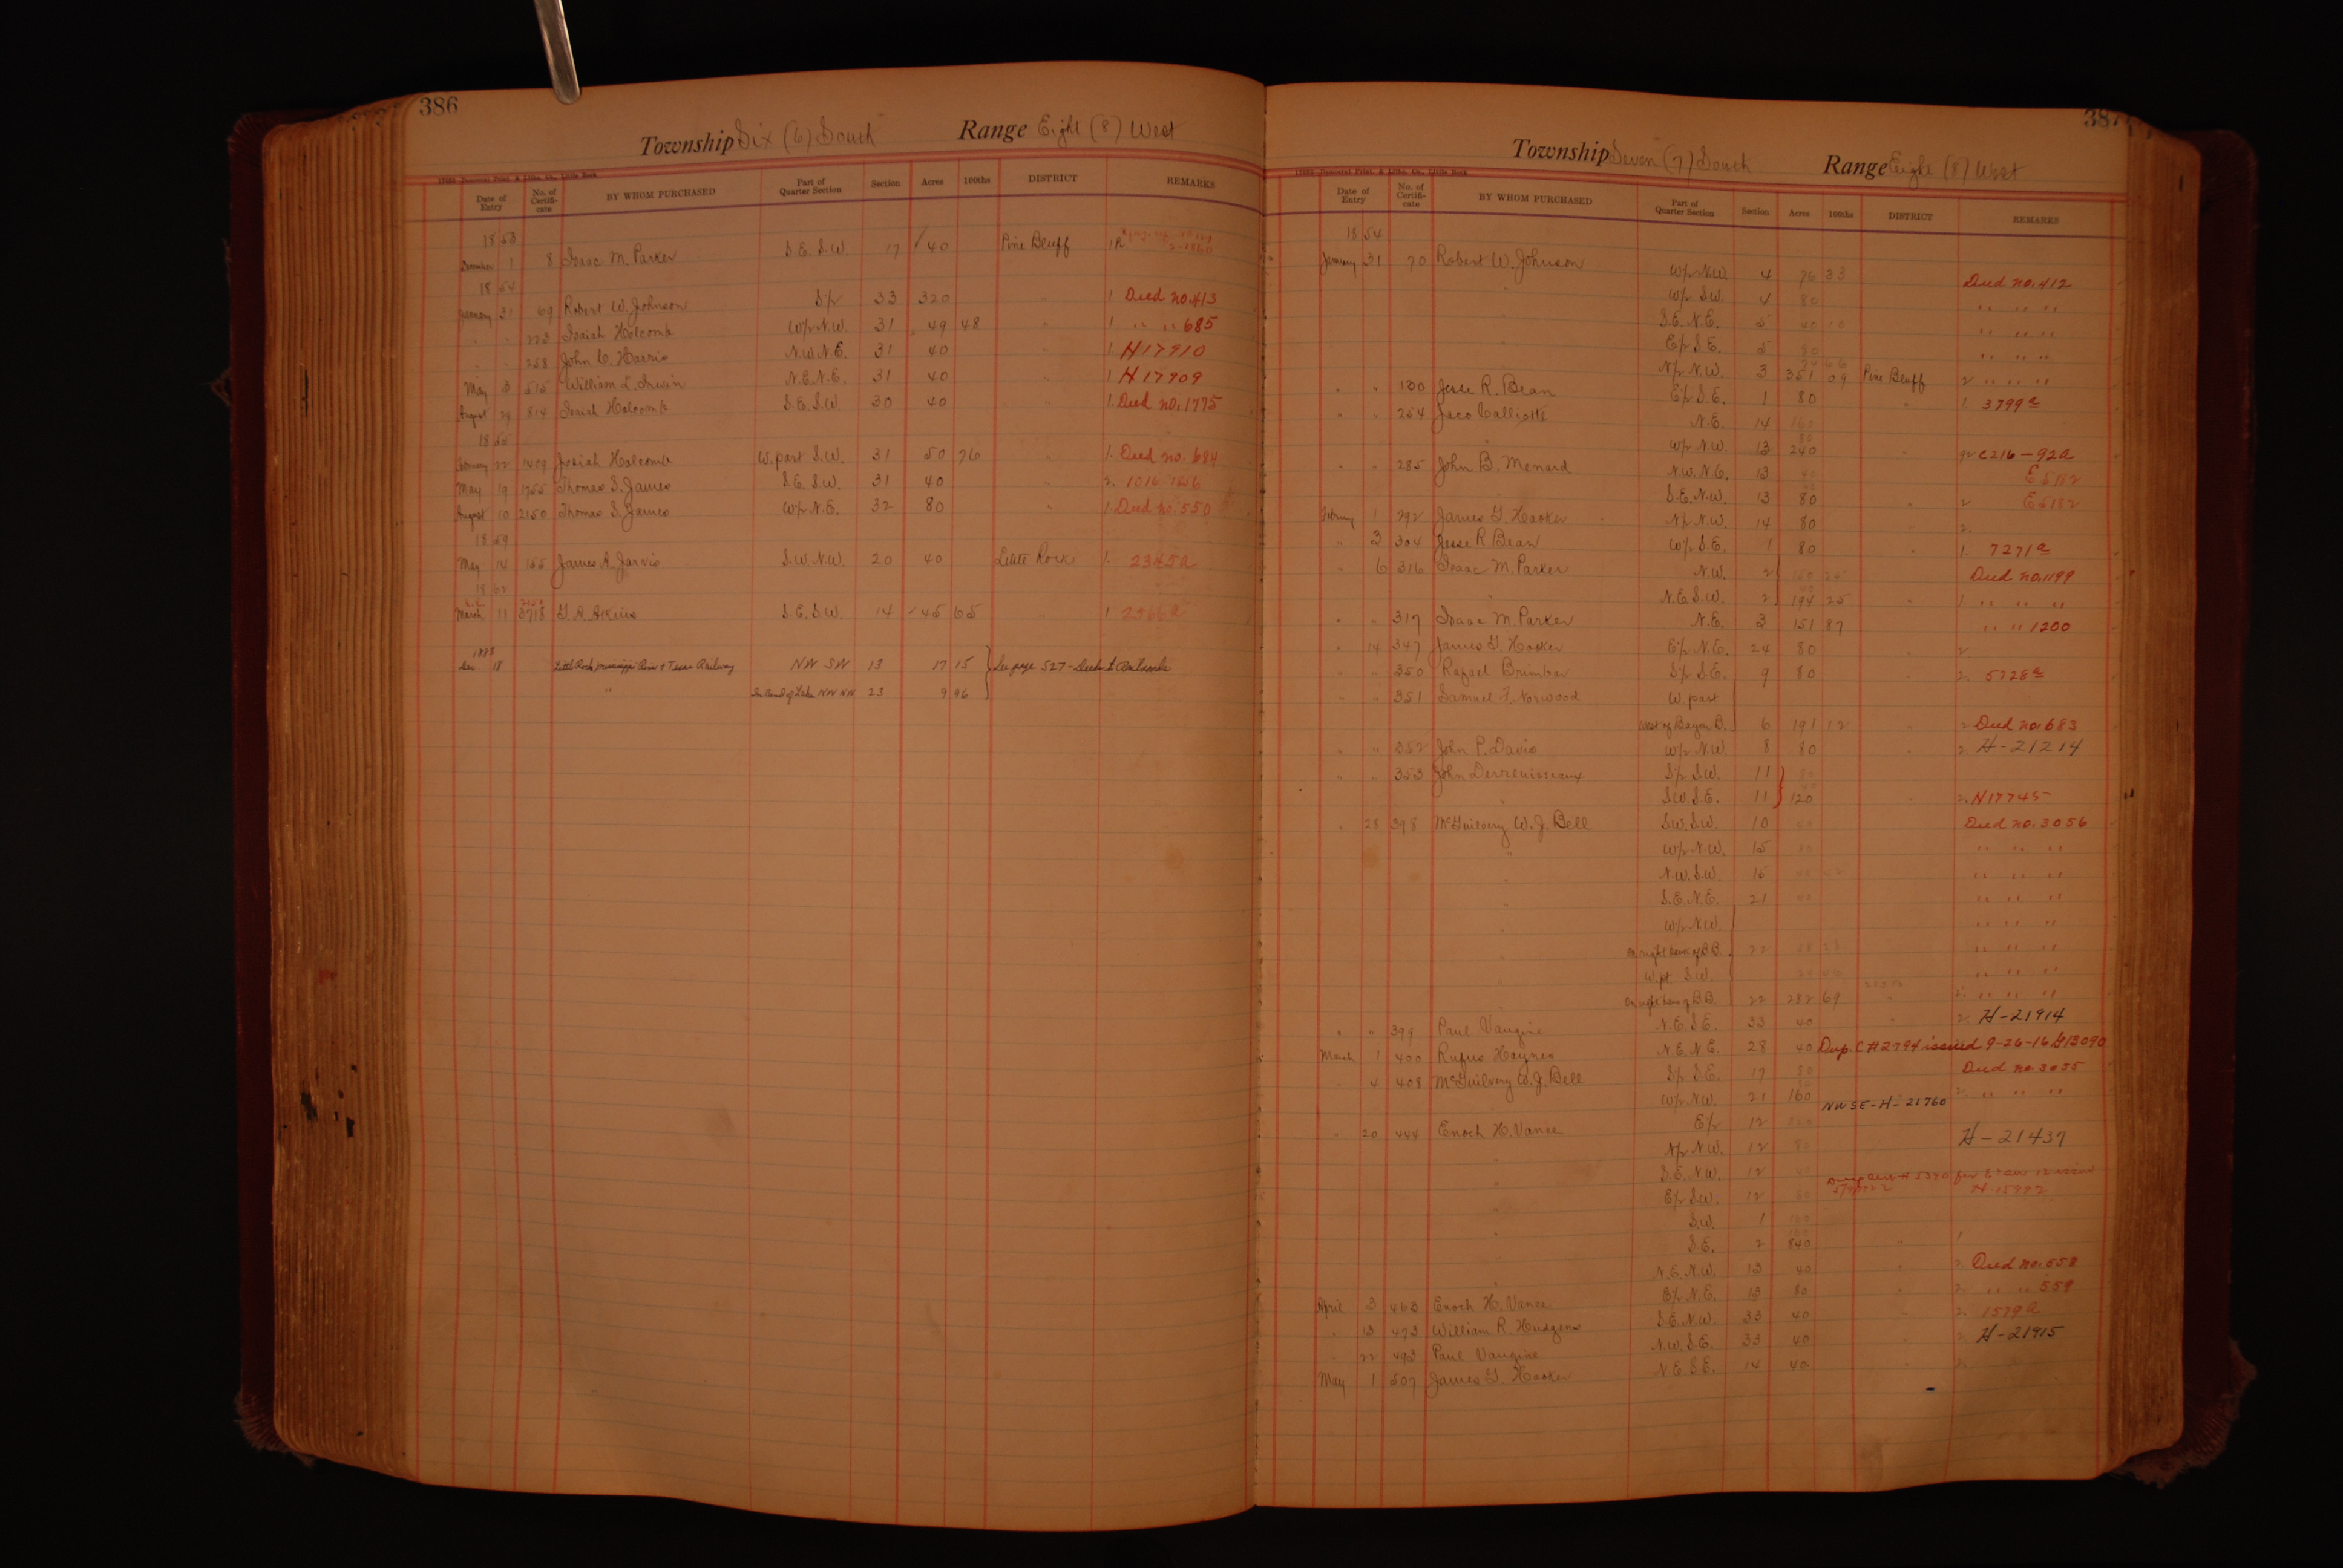 386
Township Six (6) South Range Eight (8) West
Democrat Print. & Litho. Co., Little Rock
Date of Entry No. of Certificate BY WHOM PURCHASED Part of Quarter Section Section Acres 100ths DISTRICT REMARKS
1853
December 1 8 Isaac M. Parker S.E. S.W. 17 40 Pine Bluff
1854
January 31 69 Robert W. Johnson S/2 33 320 " 1 Deed no. 413
" " 223 Isaiah Holcomb W/2 N.W. 31 49 48 " 1 " " 685
" " 258 John C. Harris N.W. N.E. 31 40 " 1 H17910
May 3 515 William L. Irwin N.E. N.E. 31 40 " 1 H17909
August 29 814 Isaiah Holcomb S.E. S.W. 30 40 " 1. Deed no. 1775
1855
February 22 1409 Josiah Holcomb W. part S.W. 31 50 76 " 1. Deed no. 684
May 19 1755 Thomas S. James S.E. S.W. 31 40 " 2. 1016
August 10 2150 Thomas S. James W/2 N.E. 32 80 " 1. Deed no. 550
1859
May 14 155 James A. Jarvis S.W. N.W. 20 40 Little Rock 1. 2365a
1862
March 11 3718 S.E. S.W. 14 45 65 " 1 2366a
1888
Dec 18 Little Rock, Mississippi River & Texas Railway NW SW 13 17 15 See page 527 - Deeds to Railroads
" NW NW 23 9 96
387
Township Seven (7) South Range Eight (8) West
Democrat Print. & Litho. Co., Little Rock
Date of Entry No. of Certificate BY WHOM PURCHASED Part of Quarter Section Section Acres 100ths DISTRICT REMARKS
1854
January 31 70 Robert W. Johnson W/2 N.W. 4 76 33 Deed no. 412
" W/2 S.W. 4 80 " " "
S.E. N.E. 5 40 " " "
" E/2 S.E. 5 80 " " "
N/2 N.W. 3 351 09 Pine Bluff 2 " " "
" " 180 Jesse R. Bean E/2 S.E. 1 80 " 1. 3799a
" " 254 Jaco Calliotte N.E. 14 160
" W/2 N.W. 13 240 " C216-92a
" " 285 John B. Menard N.W. N.E. 13 E5182
" S.E. N.W. 13 80 " 2 E5182
February 1 292 James G. Hooker N/2 N.W. 14 80 2.
" 3 304 Jesse R. Bean W/2 S.E. 1 80 " 1. 7271a
" 6 316 Isaac M. Parker N.W. 2 Deed no. 1199
" N.E. S.W. 2 194 25 " 1 " " "
" " 317 Isaac M. Parker N.E. 3 151 87 " " 1200
" 14 347 James G. Hooker E/2 N.E. 24 80 " 2
" " 350 Rafael Brimber S/2 S.E. 9 80 " 2. 5728a
" " 351 Samuel F. Norwood W part
West of Bayou B. 6 191 12 " 2 Deed no. 683
" " 352 John P. Davis W/2 N.W. 8 80 " 2. H-21214
" " 353 John Derreuisseaux S/2 S.W. 11 80
" S.W. S.E. 11 120 " 2. H17745
" 28 398 McGuilvery W. J. Bell S.W. S.W. 10 Deed no. 3056
" W/2 N.W. 15 80 " " "
" N.W. S.W. 15 " " "
" S.E. N.E. 21 40 " " "
W/2 N.W. " " "
" on right bank of B.B. 22 " " "
" W.pt S.W. " " "
" on right bank of B.B. 22 282 69 " 2. " " "
" " 399 Paul Vaugine N.E. S.E. 33 40 " 2. H-21914
March 1 400 Rufus Haynes N.E. N.E. 28 40 Dup. C#2794 issued 9-26-16 H13090
" 4 408 McGuilvery W. J. Bell S/2 S.E. 17 80 Deed no. 3055
" W/2 N.W. 21 160 2. " " "
NW SE-H-21760
" 20 444 Enoch H. Vance E/2 12 320
" N/2 N.W. 12 80 H-21437
" S.E. N.W. 12 40
" E/2 S.W. 12 80
" S.W. 1 160
" S.E. 2 840 " 1
" N.E. N.W. 13 40 " 2. Deed no. 558
April 3 463 Enoch H. Vance E/2 N.E. 13 80 " 2. " " 559
" 13 473 William R. Hudgens S.E. N.W. 33 40 " 2. 1579a
" 22 493 Paul Vaugine N.W. S.E. 33 40 H-21915
May 1 507 James G. Hooker N.E. S.E. 14 40 " 2.